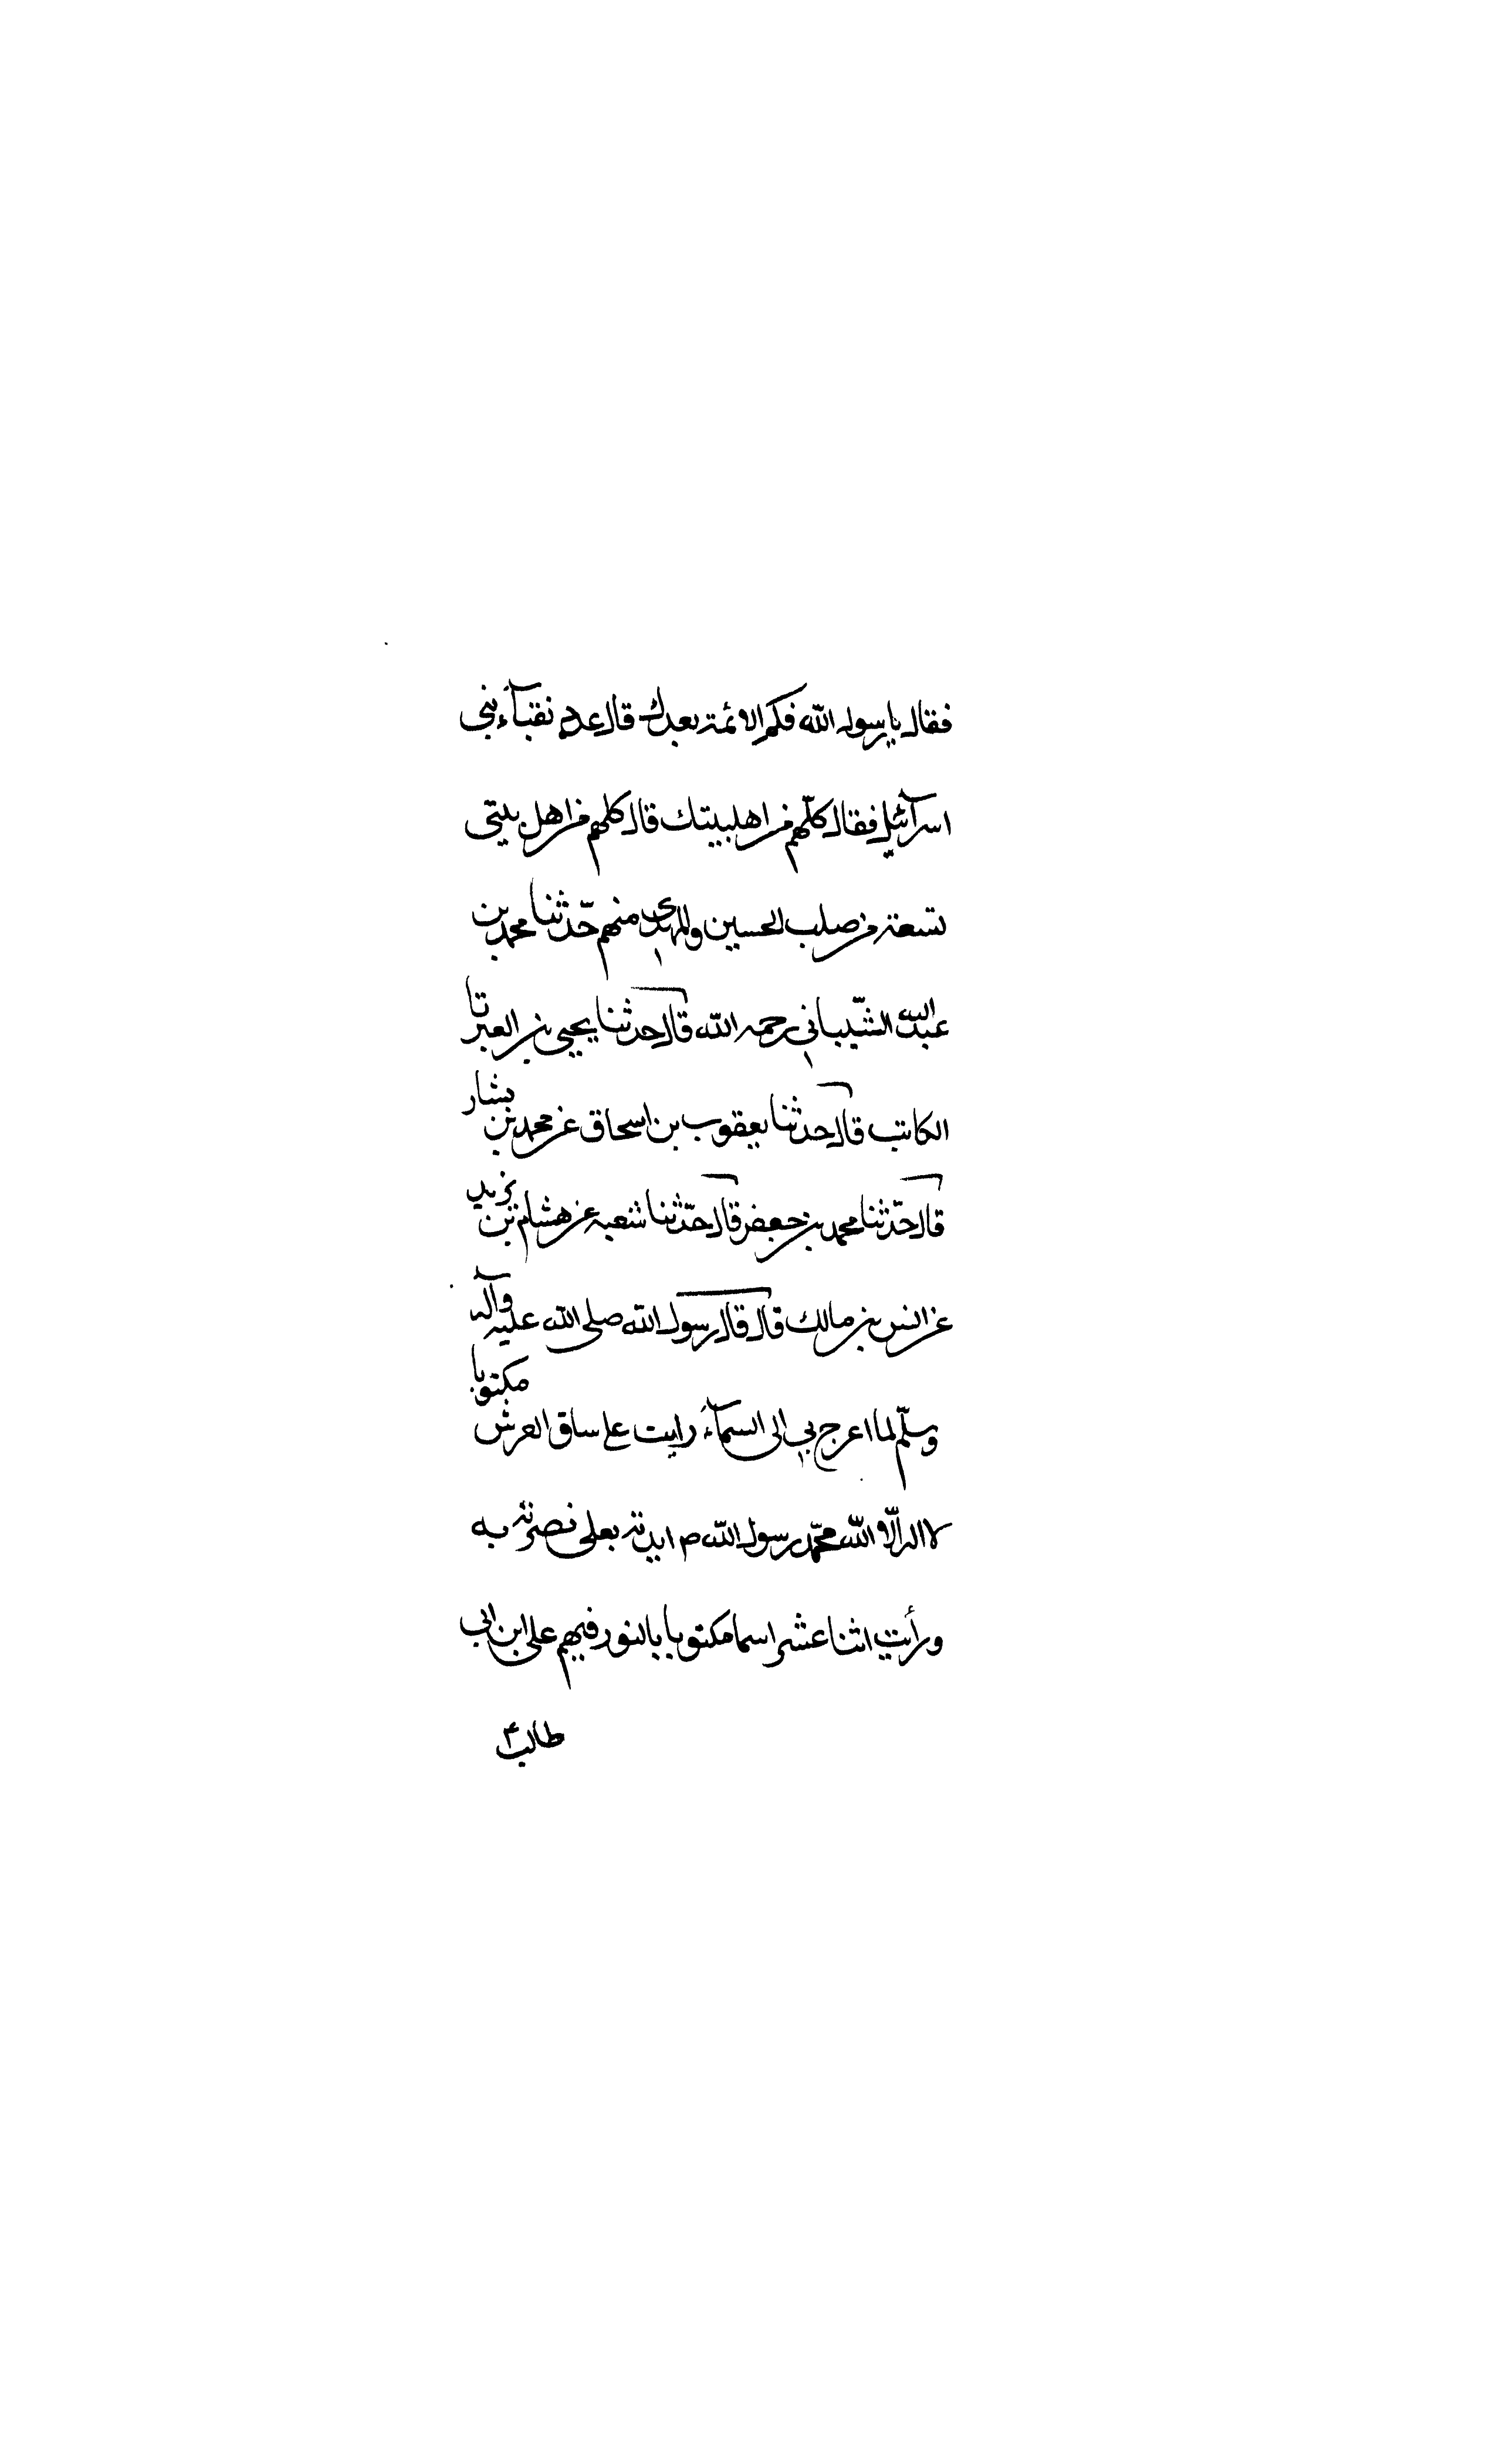 فقال يا رسول الله فكم الائمة بعدك قال عدد نقبآء بنى
اسرآئيل فقال كلّهم من اهلبيتك قال كلهم من اهل بيتى
تسعة من صلب الحسين والمهدى منهم حدّثنا محمد بن
عبد الله الشّيبانى رحمه الله قال حدثنا يحيى بن العبرتا
الكاتب قال حدثنا يعقوب بن اسحاق عن محمد بن بشار
قال حدّثنا محمد بن جعفر قال حدّثنا شعبه عن هشام بن يزيد
عن انس بن مالك قال قال رسول الله صلى الله عليه وآله
وسلّم لما اعرج بي الى السمآء رايت على ساق العرش مكتوبا
لا اله الّا الله محمّد رسول الله ص ايدته بعلى نصرته به
ورأيت اثنا عشر اسما مكتوبا بالنور فيهم على ابن ابى
طالب ع